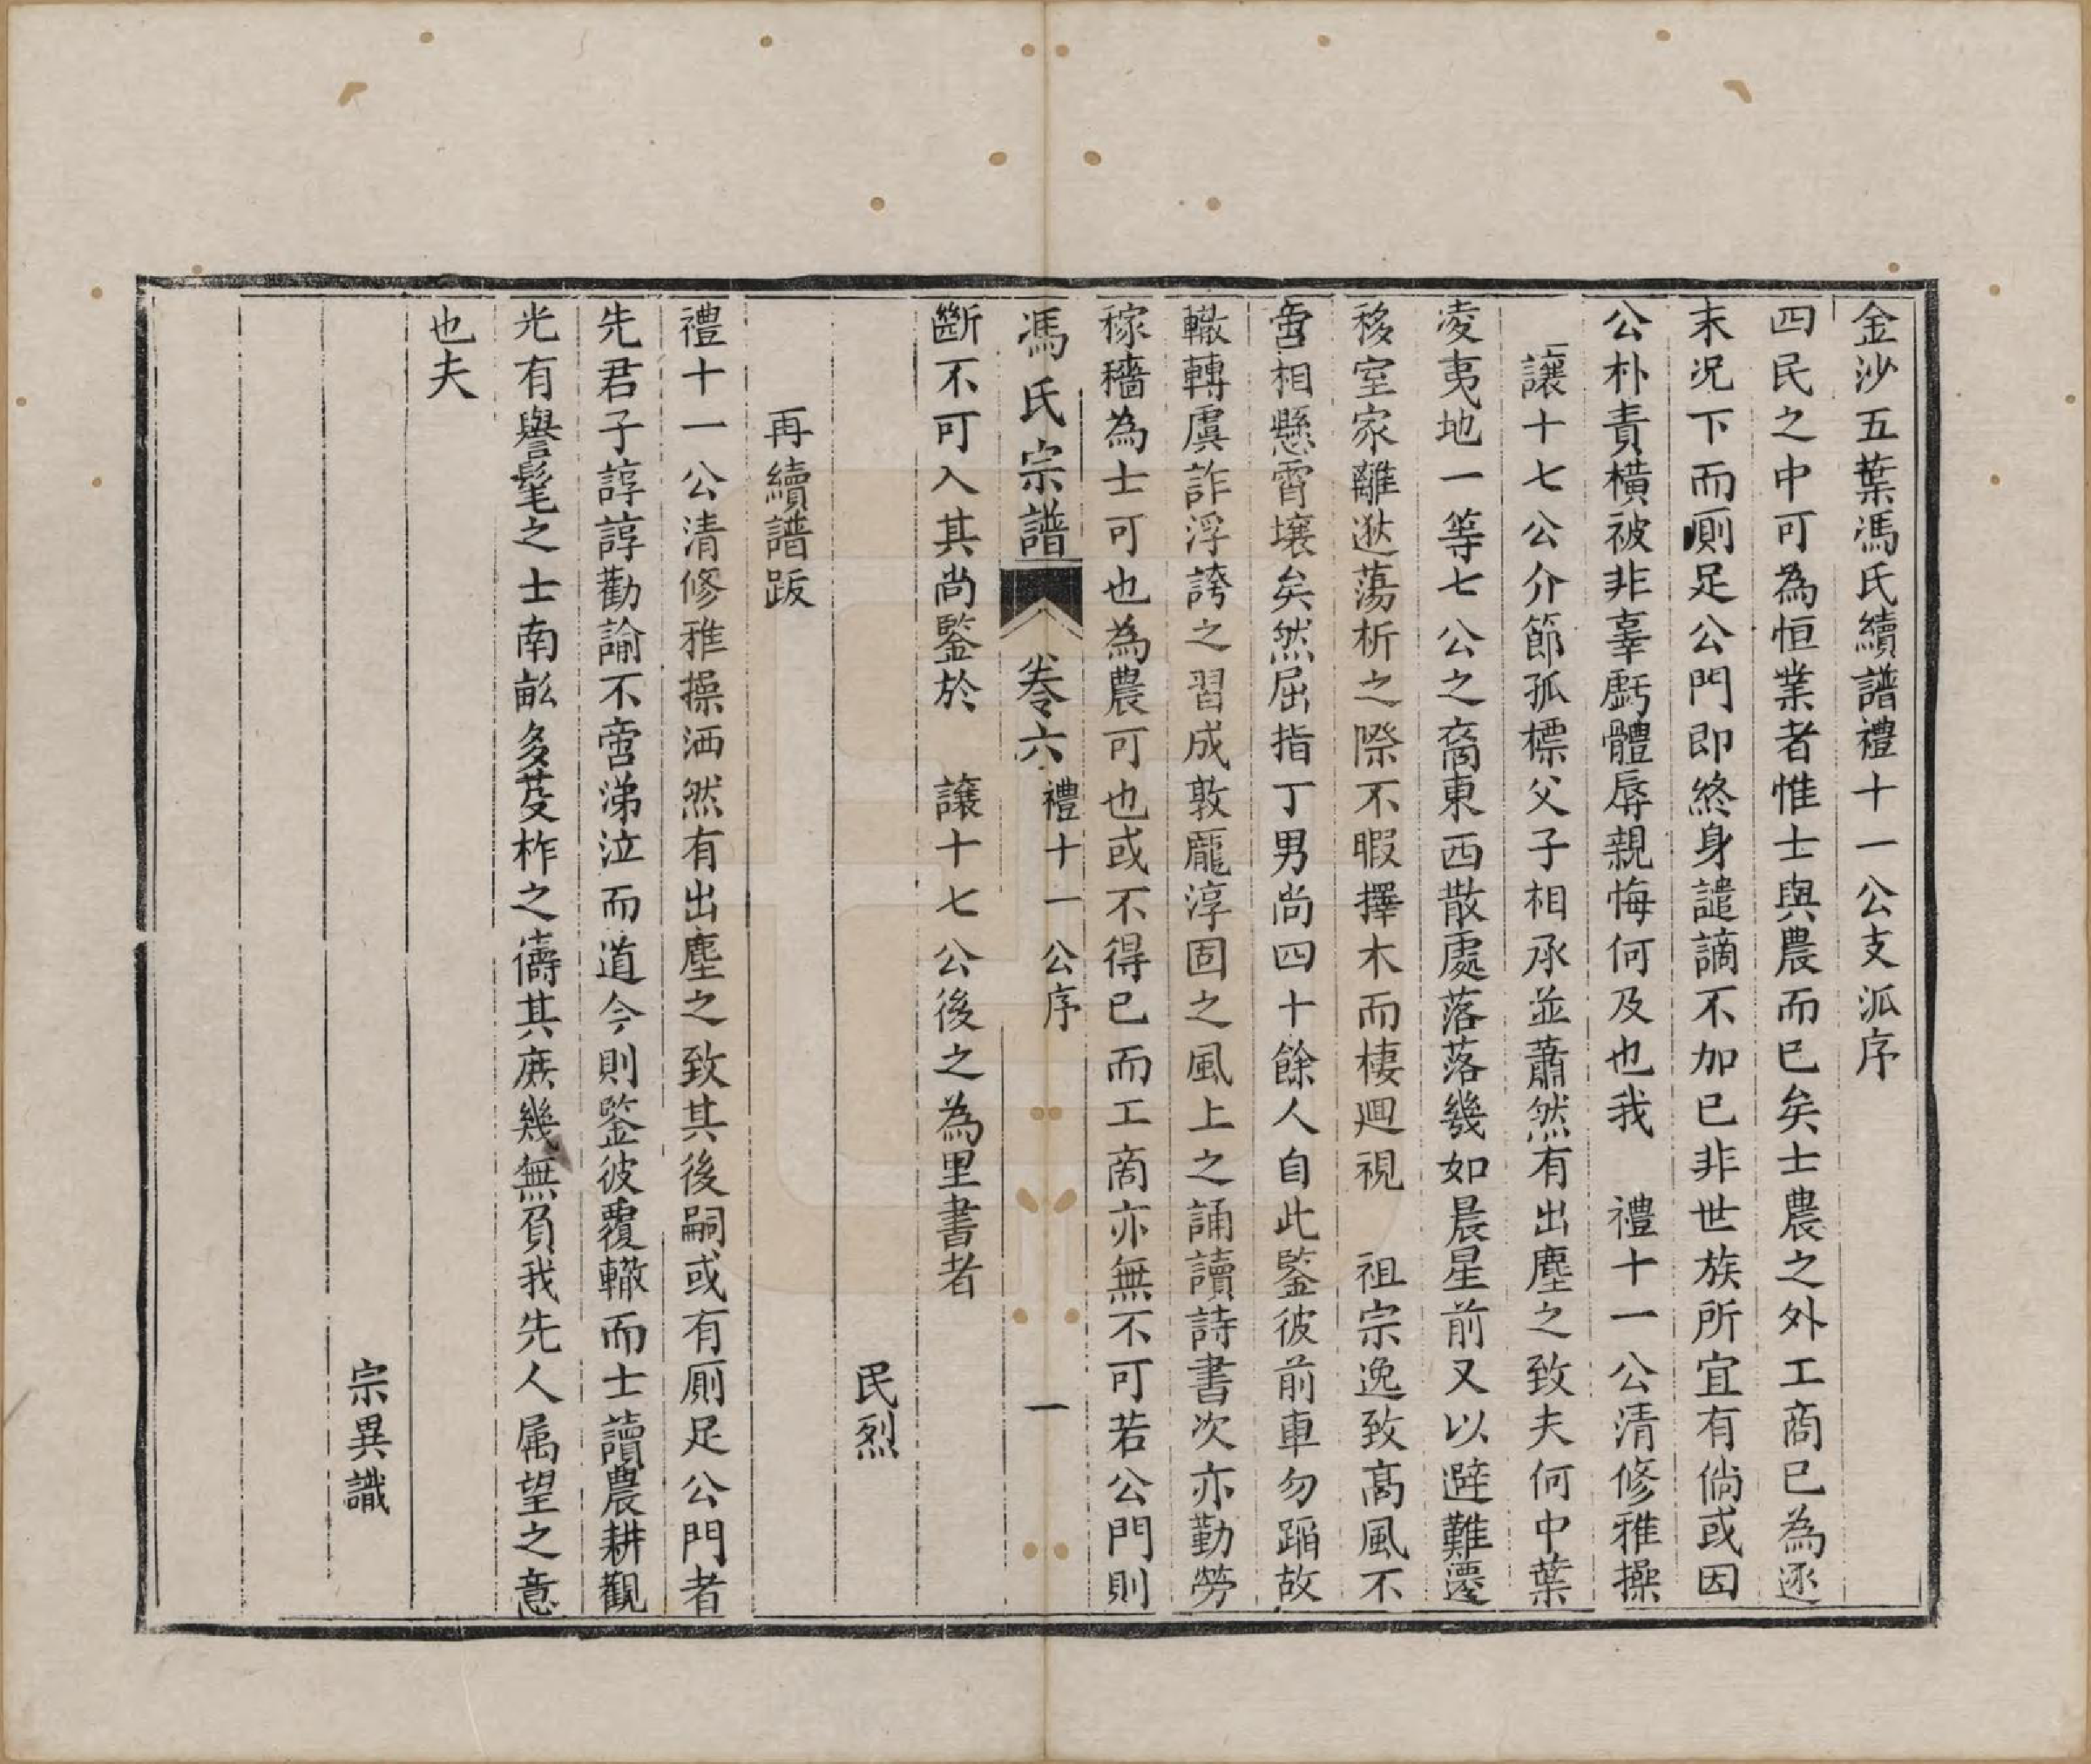 金沙五葉馮氏續譜禮十一公支派序
四民之中可為恒業者惟士與農而已矣士農之外工商已為逐
末况下而厠足公門即終身譴謫不加已非世族所宜有倘或因
公朴責橫被非辜虧體辱親悔何及也我　禮十一公清修雅操
讓十七公介節孤標父子相承並蕭然有出塵之致夫何中葉
凌夷地一等七公之裔東西散處落落幾如晨星前又以避難遷
移室家離逖蕩析之際不暇擇木而棲迴視　祖宗逸致高風不
啻相懸霄壤矣然屈指丁男尚四十餘人自此鑒彼前車勿蹈故
轍轉虞詐浮誇之習成敦龐淳固之風上之誦讀詩書次亦勤勞
稼穡為士可也為農可也或不得已而工商亦無不可若公門則
馮氏宗譜　卷六　禮十一公序　一
斷不可入其尚鑒於　讓十七公後之為里書者
民烈
再續譜跋
禮十一公清修雅操洒然有出塵之致其後嗣或有厠足公門者
先君子諄諄勸諭不啻涕泣而道今則鑒彼覆轍而士讀農耕觀
光有譽髦之士南畝多芟柞之儔其庶幾無負我先人属望之意
也夫
宗異識